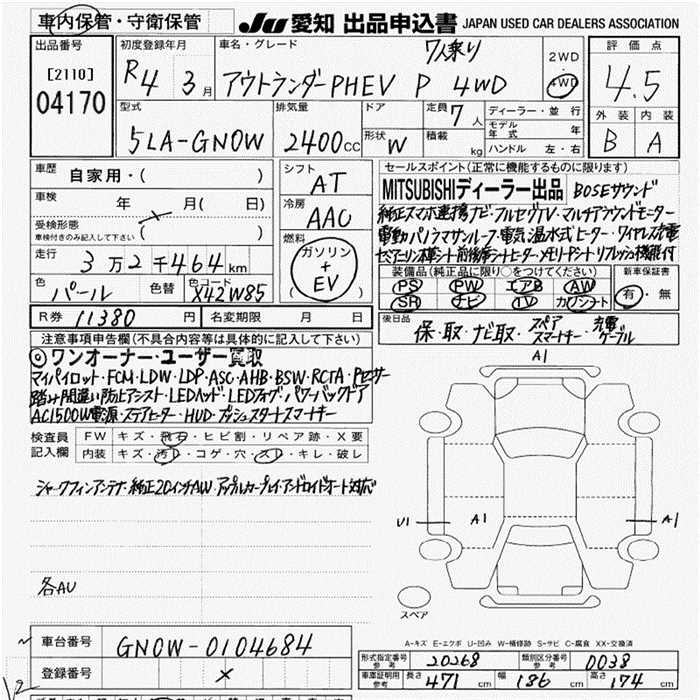 車内保管・守衛保管
JU 愛知 出品申込書 JAPAN USED CAR DEALERS ASSOCIATION
出品番号
[2110]
04170
初度登録年月
R4 3月
車名・グレード
7人乗り
アウトランダーPHEV P 4WD
2WD
・
4WD
評価点
4.5
外装 内装
B A
型式
5LA-GN0W
排気量
2400cc
ドア
形状 W
定員 7人
積載 kg
ディーラー・並行
モデル年式 年
ハンドル 左・右
車歴
自家用・( )
車検 年 月( 日)
受検形態
車検付きのみ記入して下さい ( )
走行
3万2千464km
色 パール
色替
色コード X42W85
シフト
AT
冷房
AAC
燃料
ガソリン
+
EV
( )
セールスポイント(正常に機能するものに限ります)
MITSUBISHIディーラー出品 BOSEサウンド
純正スマホ連携ナビ・フルセグTV・マルチアラウンドモニター
電動パノラマサンルーフ・電気温水式ヒーター・ワイヤレス充電
セミアニリン本革シート前後席シートヒーター・メモリーシート・リフレッシュ機能付
装備品(純正品に限り○をつけてください)
PS PW エアB AW
SR ナビ TV カワシート
新車保証書
有・無
R券 11380円
名変期限 月 日
後日品
保・取・ナビ取・スペアスマートキー・充電ケーブル
注意事項申告欄(不具合内容等は具体的に記入して下さい)
◎ワンオーナー・ユーザー買取
マイパイロット・FCM・LDW・LDP・ASC・AHB・BSW・RCTA・Pセンサー
踏み間違い防止アシスト・LEDヘッド・LEDフォグ・パワーバックドア
AC1500W電源・ステアヒーター・HUD・プッシュスタートスマートキー
検査員
記入欄
FW キズ・飛石・ヒビ割・リペア跡・X要
内装 キズ・汚レ・コゲ・穴・スレ・キレ・破レ
シャークフィンアンテナ・純正20インチAW・アップルカープレイ・アンドロイドオート対応
各AU
A1
U1
A1
A1
スペア
A-キズ E-エクボ U-凹み W-補修跡 S-サビ C-腐食 XX-交換済
車台番号 GN0W-0104684
登録番号 ×
形式指定番号
参考
20268
類別区分番号
参考
0038
車庫証明用
参考
長さ 471cm 幅 186cm 高さ 174cm